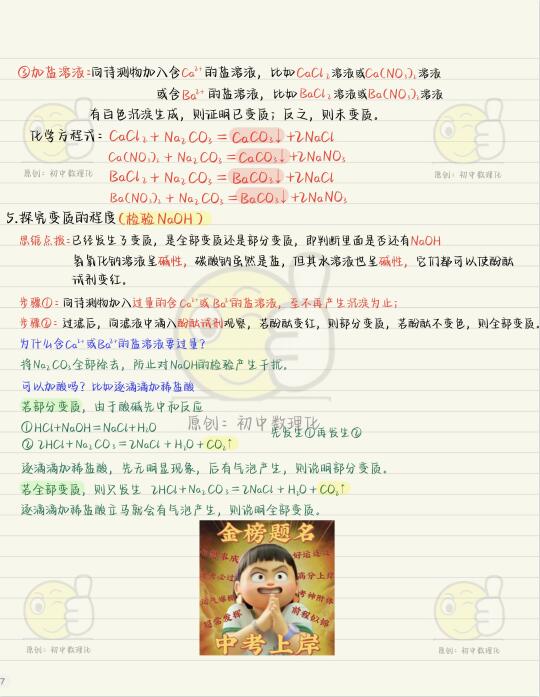 ③加盐溶液:向待测物加入含Ca²⁺的盐溶液，比如CaCl₂溶液或Ca(NO₃)₂溶液
或含Ba²⁺的盐溶液，比如BaCl₂溶液或Ba(NO₃)₂溶液
有白色沉淀生成，则证明已变质；反之，则未变质。
化学方程式：CaCl₂+Na₂CO₃=CaCO₃↓+2NaCl
Ca(NO₃)₂+Na₂CO₃=CaCO₃↓+2NaNO₃
BaCl₂+Na₂CO₃=BaCO₃↓+2NaCl
Ba(NO₃)₂+Na₂CO₃=BaCO₃↓+2NaNO₃
原创：初中数理化
原创：初中数理化
5.探究变质的程度(检验NaOH)
思维点拨:已经发生了变质，是全部变质还是部分变质，即判断里面是否还有NaOH
氢氧化钠溶液呈碱性，碳酸钠虽然是盐，但其水溶液也呈碱性，它们都可以使酚酞
试剂变红。
步骤①：向待测物加入过量的含Ca²⁺或Ba²⁺的盐溶液，至不再产生沉淀为止；
步骤②：过滤后，向滤液中滴入酚酞试剂观察，若酚酞变红，则部分变质，若酚酞不变色，则全部变质。
为什么含Ca²⁺或Ba²⁺的盐溶液要过量？
将Na₂CO₃全部除去，防止对NaOH的检验产生干扰。
可以加酸吗？比如逐滴滴加稀盐酸
若部分变质，由于酸碱先中和反应
原创：初中数理化
①HCl+NaOH=NaCl+H₂O
先发生①再发生②
②2HCl+Na₂CO₃=2NaCl+H₂O+CO₂↑
逐滴滴加稀盐酸，先无明显现象，后有气泡产生，则说明部分变质。
若全部变质，则只发生 2HCl+Na₂CO₃=2NaCl+H₂O+CO₂↑
逐滴滴加稀盐酸立马就会有气泡产生，则说明全部变质。
金榜题名
好运连连
高分上岸
考神附体
超常发挥
前程似锦
中考上岸
原创：初中数理化
原创：初中数理化
7